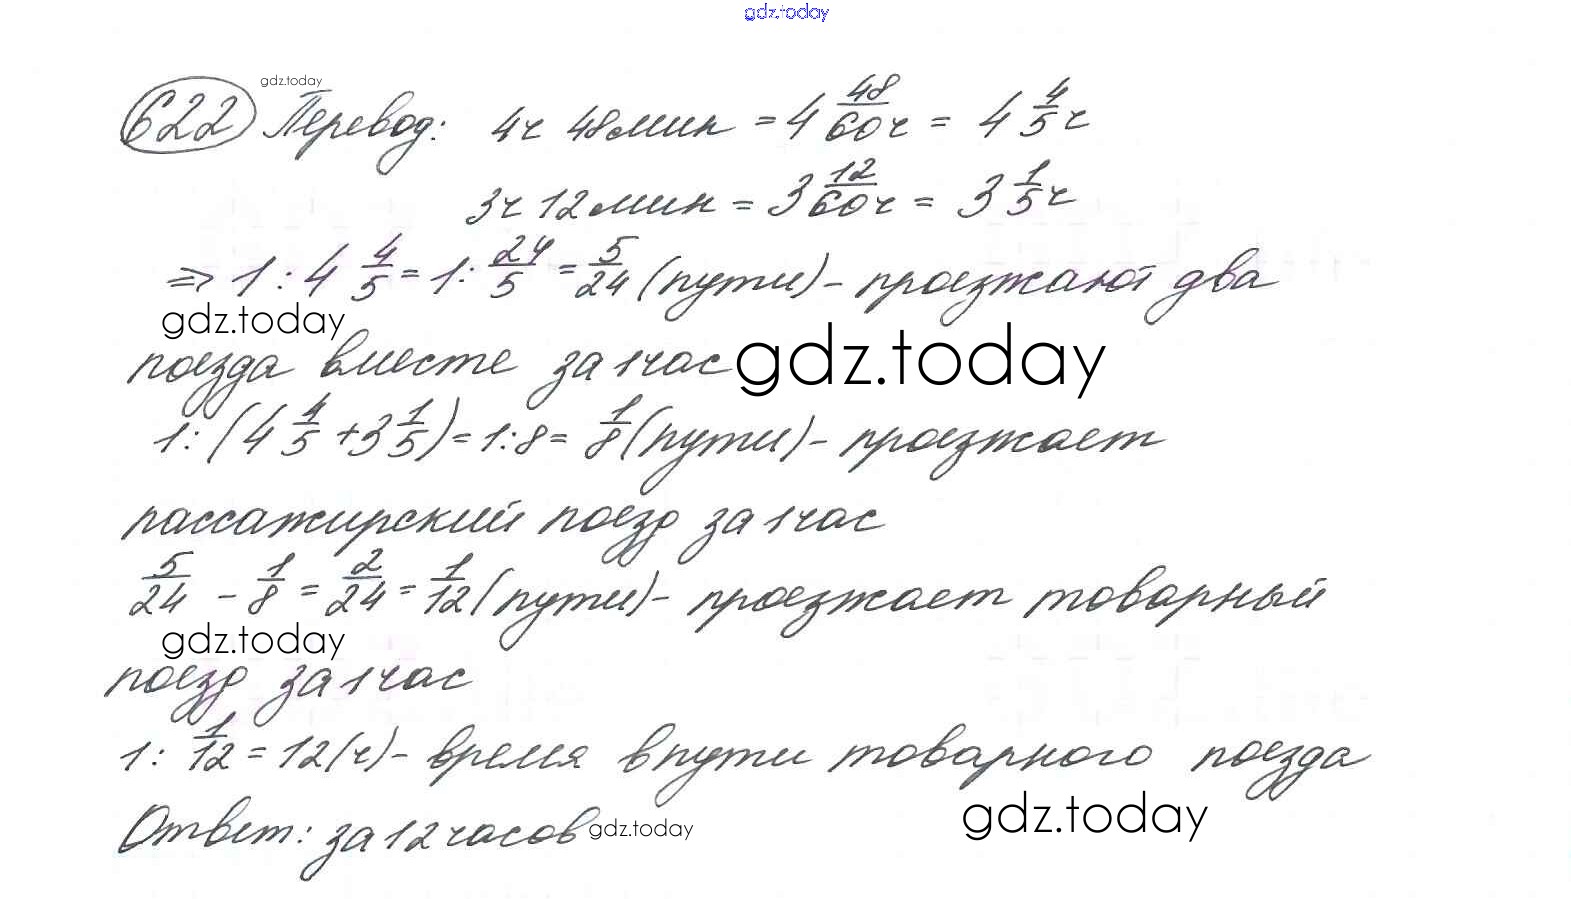 gdz.today
gdz.today
622 Перевод: 4ч 48мин = 4 48/60 ч = 4 4/5 ч
3ч 12мин = 3 12/60 ч = 3 1/5 ч
⇒ 1 : 4 4/5 = 1 : 24/5 = 5/24 (пути) - проезжают два
gdz.today
поезда вместе за 1 час gdz.today
1 : (4 4/5 + 3 1/5) = 1 : 8 = 1/8 (пути) - проезжает
пассажирский поезд за 1 час
5/24 - 1/8 = 2/24 = 1/12 (пути) - проезжает товарный
gdz.today
поезд за 1 час
1 : 1/12 = 12 (ч) - время в пути товарного поезда
Ответ: за 12 часов gdz.today
gdz.today